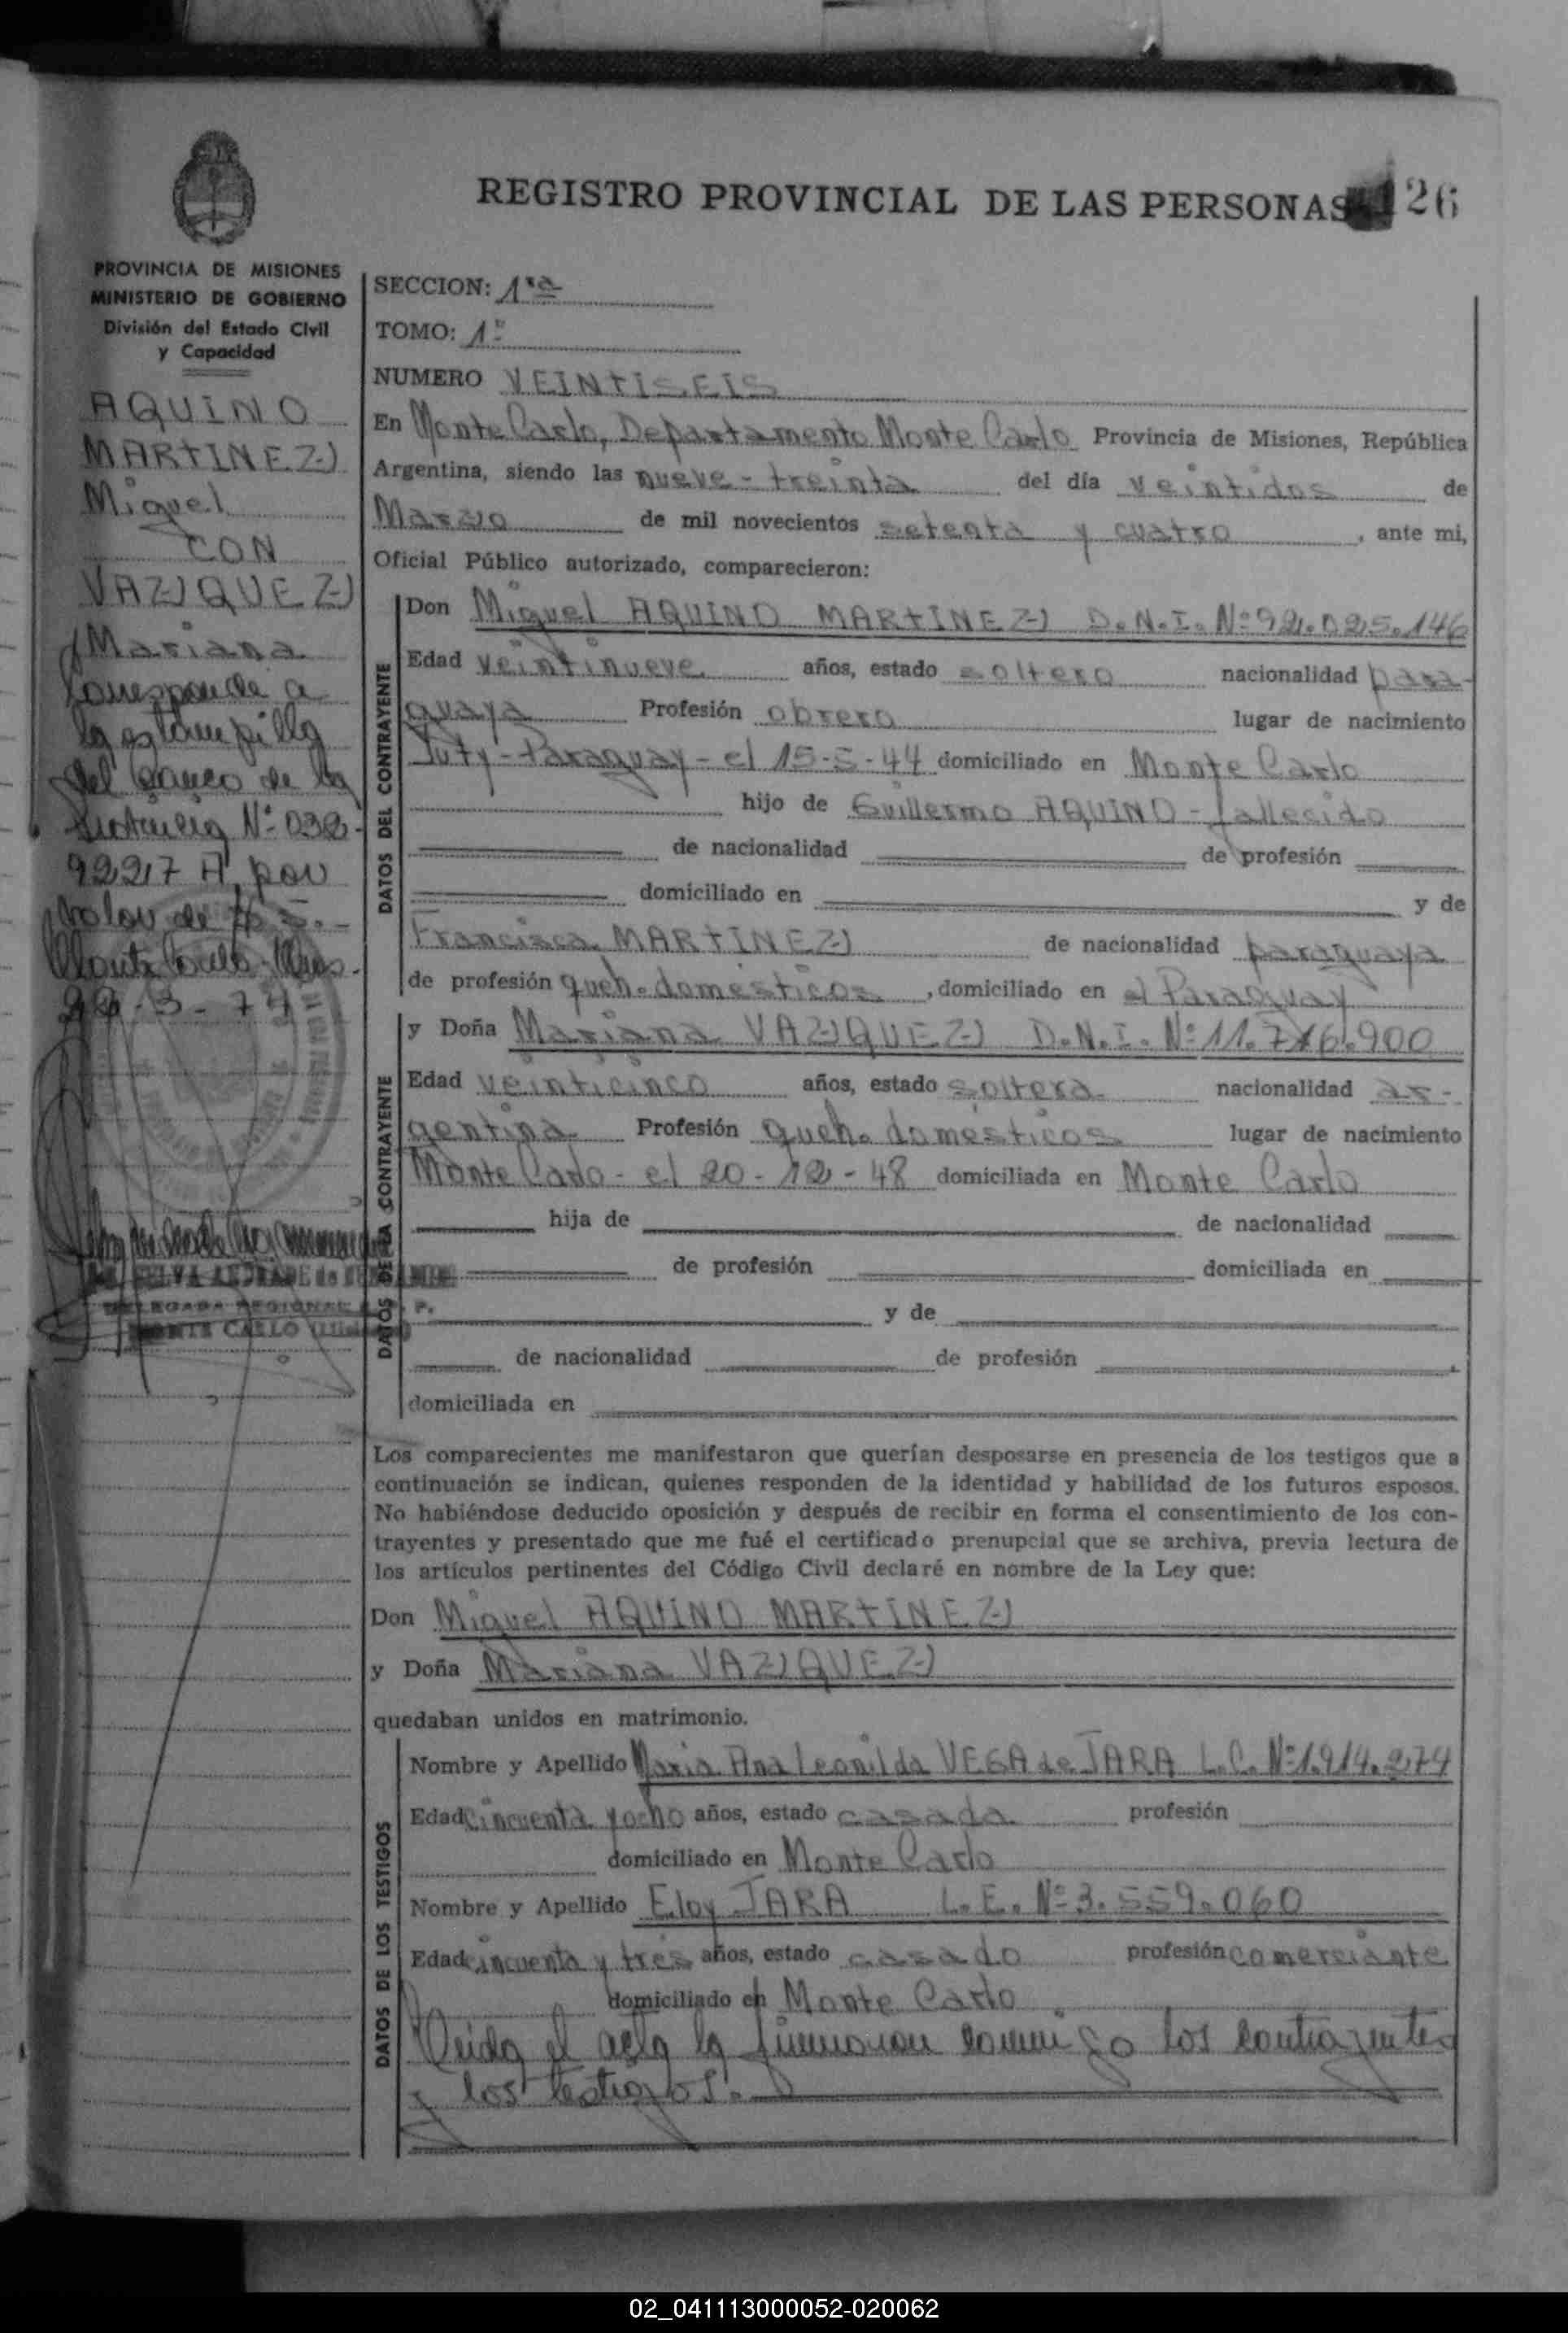 REGISTRO PROVINCIAL DE LAS PERSONAS 126
PROVINCIA DE MISIONES
MINISTERIO DE GOBIERNO
División del Estado Civil
y Capacidad
AQUINO
MARTINEZ
Miguel
CON
VAZQUEZ
Mariana
Corresponde a
la estampilla
del Banco de la
N° 032-
92217 A, por
valor de $ 5.-
Monte Carlo - Mnes.
-3-74
MONTE CARLO
SECCION: 1ra
TOMO: 1°
NUMERO VEINTISEIS
En Monte Carlo, Departamento Monte Carlo Provincia de Misiones, República
Argentina, siendo las nueve-treinta del día veintidos de
Marzo de mil novecientos setenta y cuatro, ante mi,
Oficial Público autorizado, comparecieron:
DATOS DEL CONTRAYENTE
Don Miguel AQUINO MARTINEZ D.N.I. N° 92.025.146
Edad veintinueve años, estado soltero nacionalidad para-
guaya Profesión obrero lugar de nacimiento
Yuty-Paraguay- el 15-5-44 domiciliado en Monte Carlo
hijo de Guillermo AQUINO - fallecido
de nacionalidad de profesión
domiciliado en y de
Francisca MARTINEZ de nacionalidad paraguaya
de profesión queh. domésticos, domiciliado en el Paraguay
DATOS DE LA CONTRAYENTE
y Doña Mariana VAZQUEZ D.N.I. N° 11.716.900
Edad veinticinco años, estado soltera nacionalidad ar-
gentina Profesión queh. domésticos lugar de nacimiento
Monte Carlo - el 20-12-48 domiciliada en Monte Carlo
hija de de nacionalidad
de profesión domiciliada en
y de
de nacionalidad de profesión
domiciliada en
Los comparecientes me manifestaron que querían desposarse en presencia de los testigos que a
continuación se indican, quienes responden de la identidad y habilidad de los futuros esposos.
No habiéndose deducido oposición y después de recibir en forma el consentimiento de los con-
trayentes y presentado que me fué el certificado prenupcial que se archiva, previa lectura de
los artículos pertinentes del Código Civil declaré en nombre de la Ley que:
Don Miguel AQUINO MARTINEZ
y Doña Mariana VAZQUEZ
quedaban unidos en matrimonio.
DATOS DE LOS TESTIGOS
Nombre y Apellido Maria Ana Leonilda VEGA de JARA L.C. N° 1.914.274
Edad cincuenta y ocho años, estado casada profesión
domiciliado en Monte Carlo
Nombre y Apellido Eloy JARA L.E. N° 3.559.060
Edad cincuenta y tres años, estado casado profesión comerciante
domiciliado en Monte Carlo.
Leida el acta la firmaron conmigo los contrayentes
y los testigos.
02_041113000052-020062